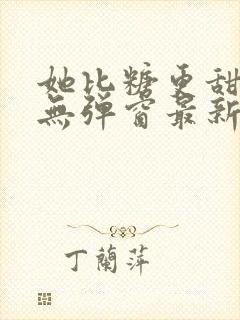 她比糖更甜
無弹窗最新
丁蘭萍